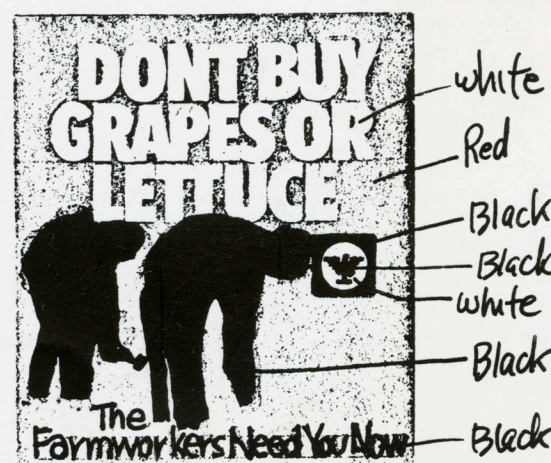 DONT BUY
GRAPES OR
LETTUCE
The
Farmworkers Need You Now
white
Red
Black
Black
white
Black
Black